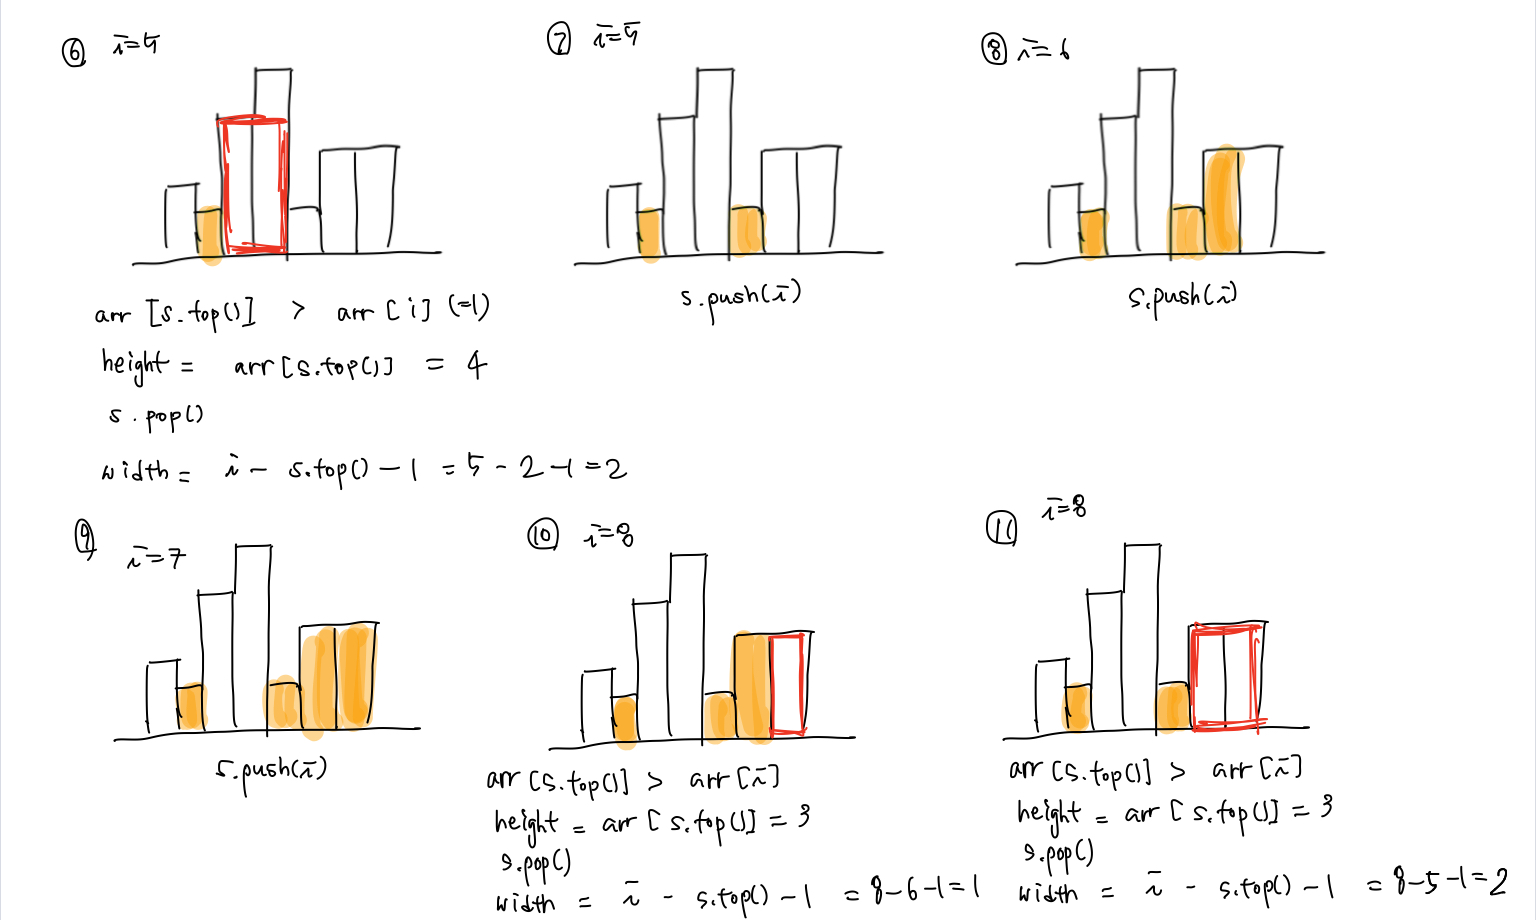 ⑥ i=5
arr [s.top()] > arr [i] (=1)
height = arr [s.top()] = 4
s.pop()
width = i - s.top() - 1 = 5 - 2 - 1 = 2
⑦ i=5
s.push(i)
⑧ i=6
s.push(i)
⑨ i=7
s.push(i)
⑩ i=8
arr [s.top()] > arr [i]
height = arr [s.top()] = 3
s.pop()
width = i - s.top() - 1 = 8-6-1=1
⑪ i=8
arr [s.top()] > arr [i]
height = arr [s.top()] = 3
s.pop()
width = i - s.top() - 1 = 8-5-1=2